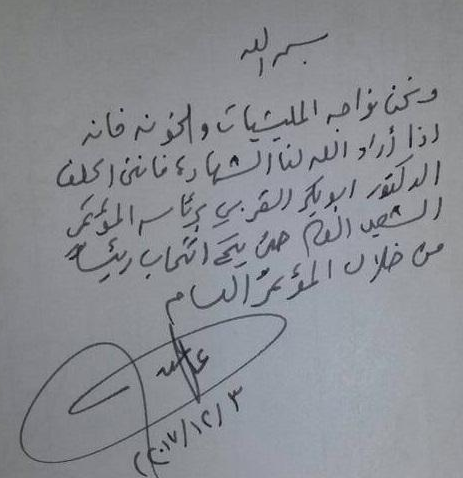 بسم الله
ونحن نواجه المليشيات والخونه فانه
اذا أراد الله لنا الشهاده فانني اكلف
الدكتور ابوبكر القربي برئاسه المؤتمر
الشعبي العام حتى يتم انتخاب رئيسا
من خلال المؤتمر العام
٣/١٢/٢٠١٧